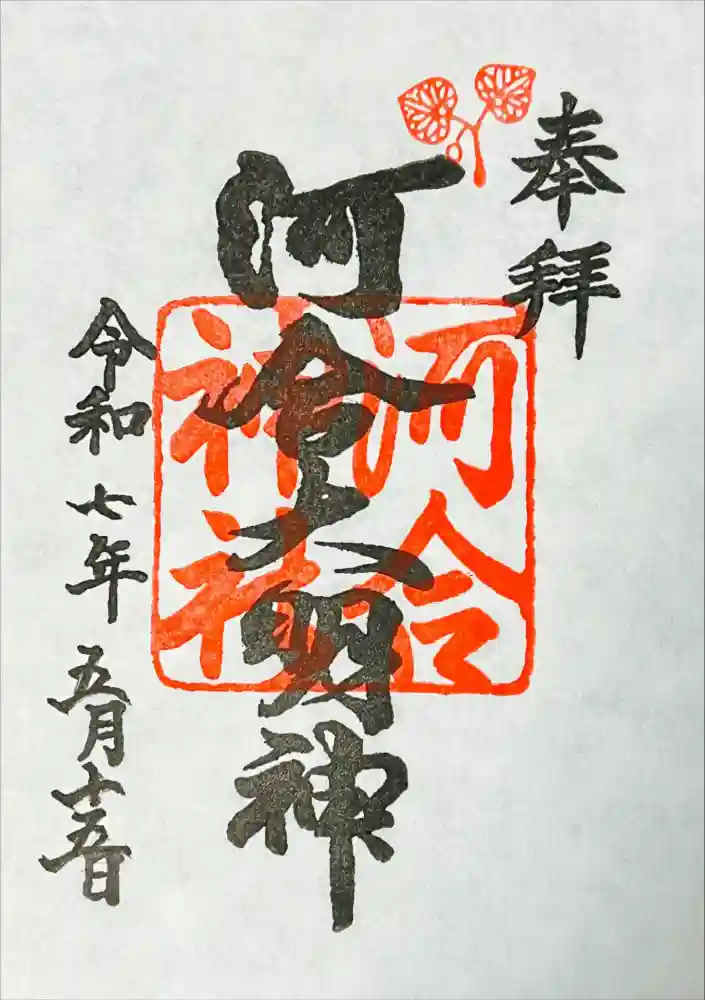 奉拝
河合大明神
河合
神社
令和七年五月十五日